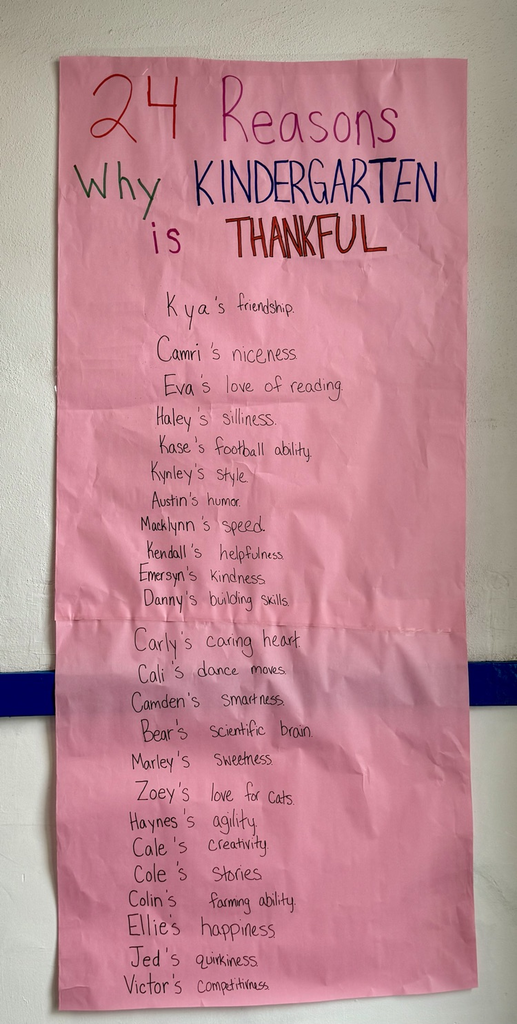 24 Reasons
Why KINDERGARTEN
is THANKFUL
Kya's friendship.
Camri's niceness.
Eva's love of reading.
Haley's silliness.
Kase's football ability.
Kynley's style.
Austin's humor.
Macklynn's speed.
Kendall's helpfulness.
Emersyn's kindness
Danny's building skills.
Carly's caring heart.
Cali's dance moves.
Camden's smartness.
Bear's scientific brain.
Marley's sweetness.
Zoey's love for cats.
Haynes's agility.
Cale's creativity.
Cole's stories
Colin's farming ability.
Ellie's happiness.
Jed's quirkiness.
Victor's competitivness.